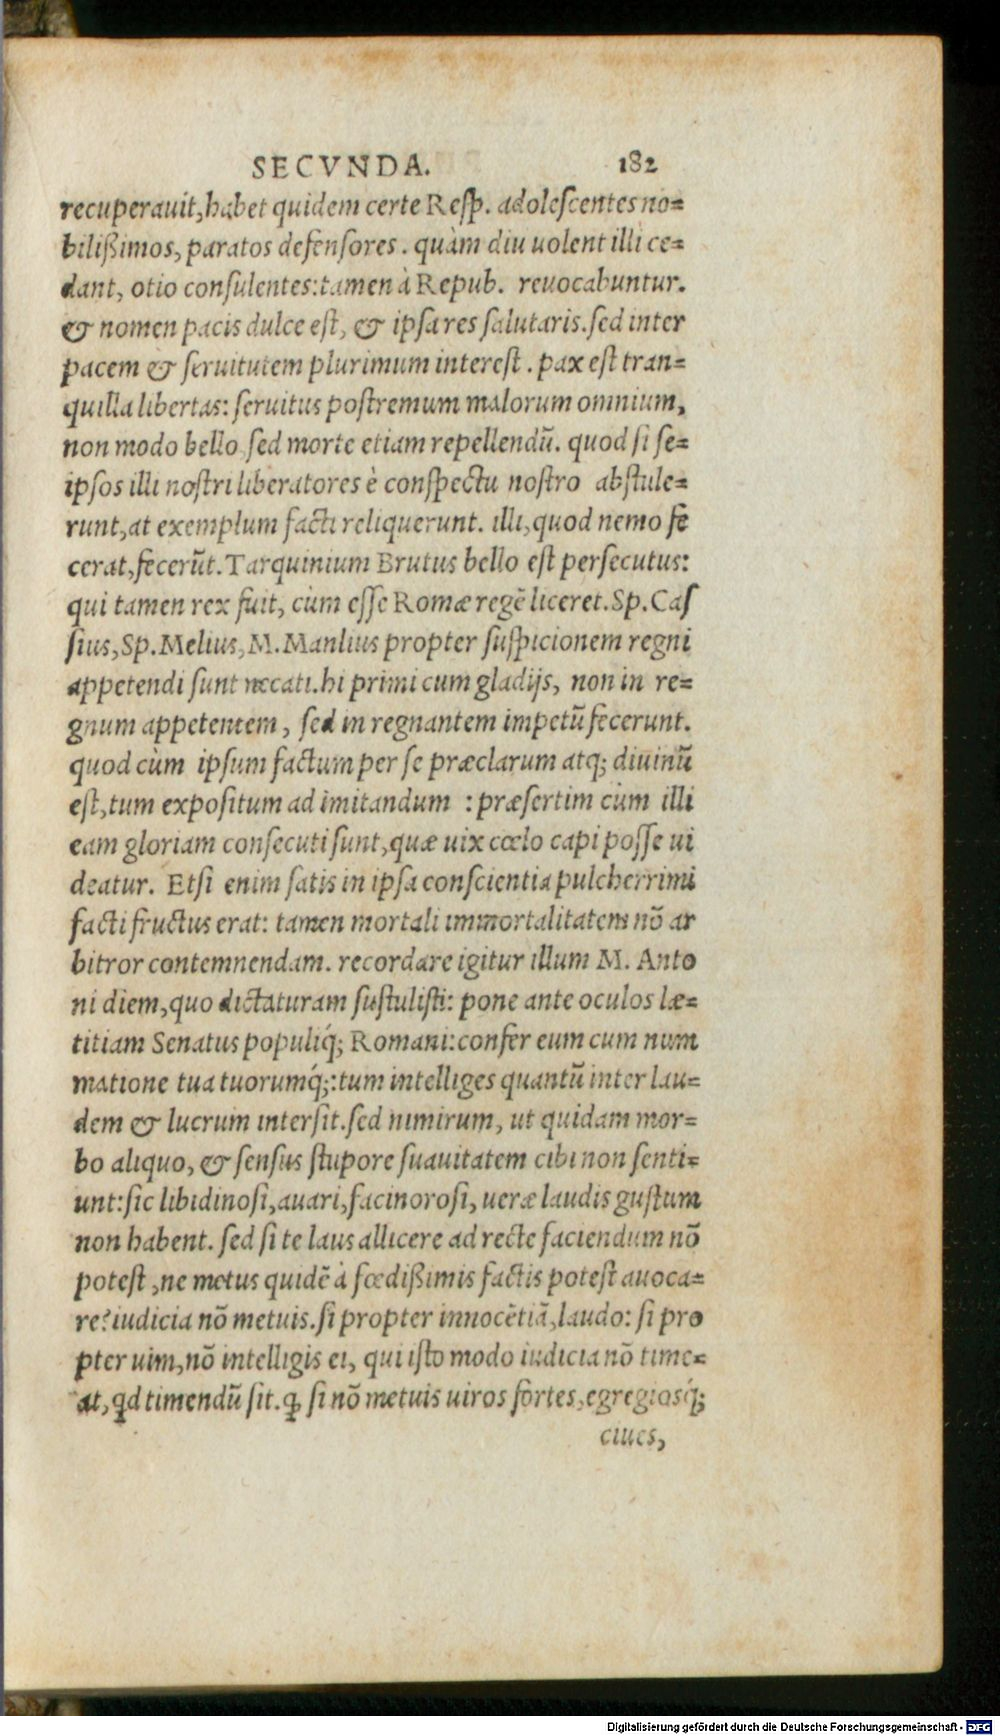 SECVNDA. 182
recuperauit,habet quidem certe Resp. adolescentes no=
bilißimos, paratos defensores. quàm diu uolent illi ce=
dant, otio consulentes:tamen à Repub. reuocabuntur.
& nomen pacis dulce est, & ipsa res salutaris.sed inter
pacem & seruitutem plurimum interest. pax est tran=
quilla libertas: seruitus postremum malorum omnium,
non modo bello sed morte etiam repellendū. quod si se=
ipsos illi nostri liberatores è conspectu nostro abstule=
runt,at exemplum facti reliquerunt. illi,quod nemo fe
cerat,fecerūt.Tarquinium Brutus bello est persecutus:
qui tamen rex fuit, cùm esse Romæ regē liceret.Sp.Cas
sius,Sp.Melius,M.Manlius propter suspicionem regni
appetendi sunt necati.hi primi cum gladijs, non in re=
gnum appetentem, sed in regnantem impetū fecerunt.
quod cùm ipsum factum per se præclarum atq; diuinū
est,tum expositum ad imitandum : præsertim cùm illi
eam gloriam consecuti sunt,quæ uix cœlo capi posse ui
deatur. Etsi enim satis in ipsa conscientia pulcherrimi
facti fructus erat: tamen mortali immortalitatem nō ar
bitror contemnendam. recordare igitur illum M. Anto
ni diem,quo dictaturam sustulisti: pone ante oculos læ=
titiam Senatus populiq́; Romani:confer eum cum num
matione tua tuorumq́;:tum intelliges quantū inter lau=
dem & lucrum intersit.sed nimirum, ut quidam mor=
bo aliquo, & sensus stupore suauitatem cibi non senti=
unt:sic libidinosi,auari,facinorosi, ueræ laudis gustum
non habent. sed si te laus allicere ad recte faciendum nō
potest,ne metus quidē à fœdißimis factis potest auoca=
re?iudicia nō metuis.si propter innocētiā,laudo: si pro
pter uim,nō intelligis ei, qui isto modo iudicia nō time=
at,qd timendū sit.ꝙ si nō metuis uiros fortes,egregiosq́;
ciues,
Digitalisierung gefördert durch die Deutsche Forschungsgemeinschaft - DFG